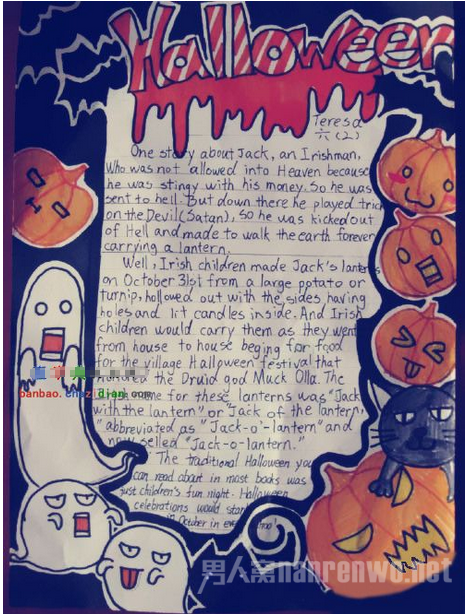 Halloween
Teresa
六(2)
One story about Jack, an Irishman,
Who was not allowed into Heaven because
he was stingy with his money. So he was
sent to hell. But down there he played trick
on the Devil(Satan), so he was kicked out
of Hell and made to walk the earth forever
carrying a lantern.
Well, Irish children made Jack's lanterns
on October 31st from a large potato or
turnip, hollowed out with the sides having
holes and lit candles inside. And Irish
children would carry them as they went
from house to house beging for food
for the village Halloween festival that
the Druid god Muck Olla. The
name for these lanterns was "Jack
with the lantern" or "Jack of the lantern,
"abbreviated as "Jack-o'-lantern" and
now selled "Jack-o-lantern."
The traditional Halloween you
can read about in most books was
just children's fun night. Halloween
celebrations would start
in October in
banbao.chazidian.com
男人窝nanrenwo.net